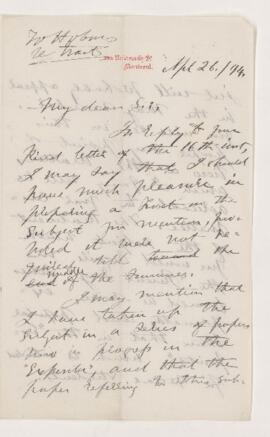 To Holmes
re Tracts
Montreal.
Apl 26/94.
My dear Sir
In reply to your
kind letter of the 16th inst,
I may say that I should
have much pleasure in
preparing a tract on the
subject you mention, pro-
vided it were not
till the
end of the summer.
I may mention that
I have taken up the
subject in a series of papers
now in progress in the
"Expositor", and that the
paper referring to this sub-